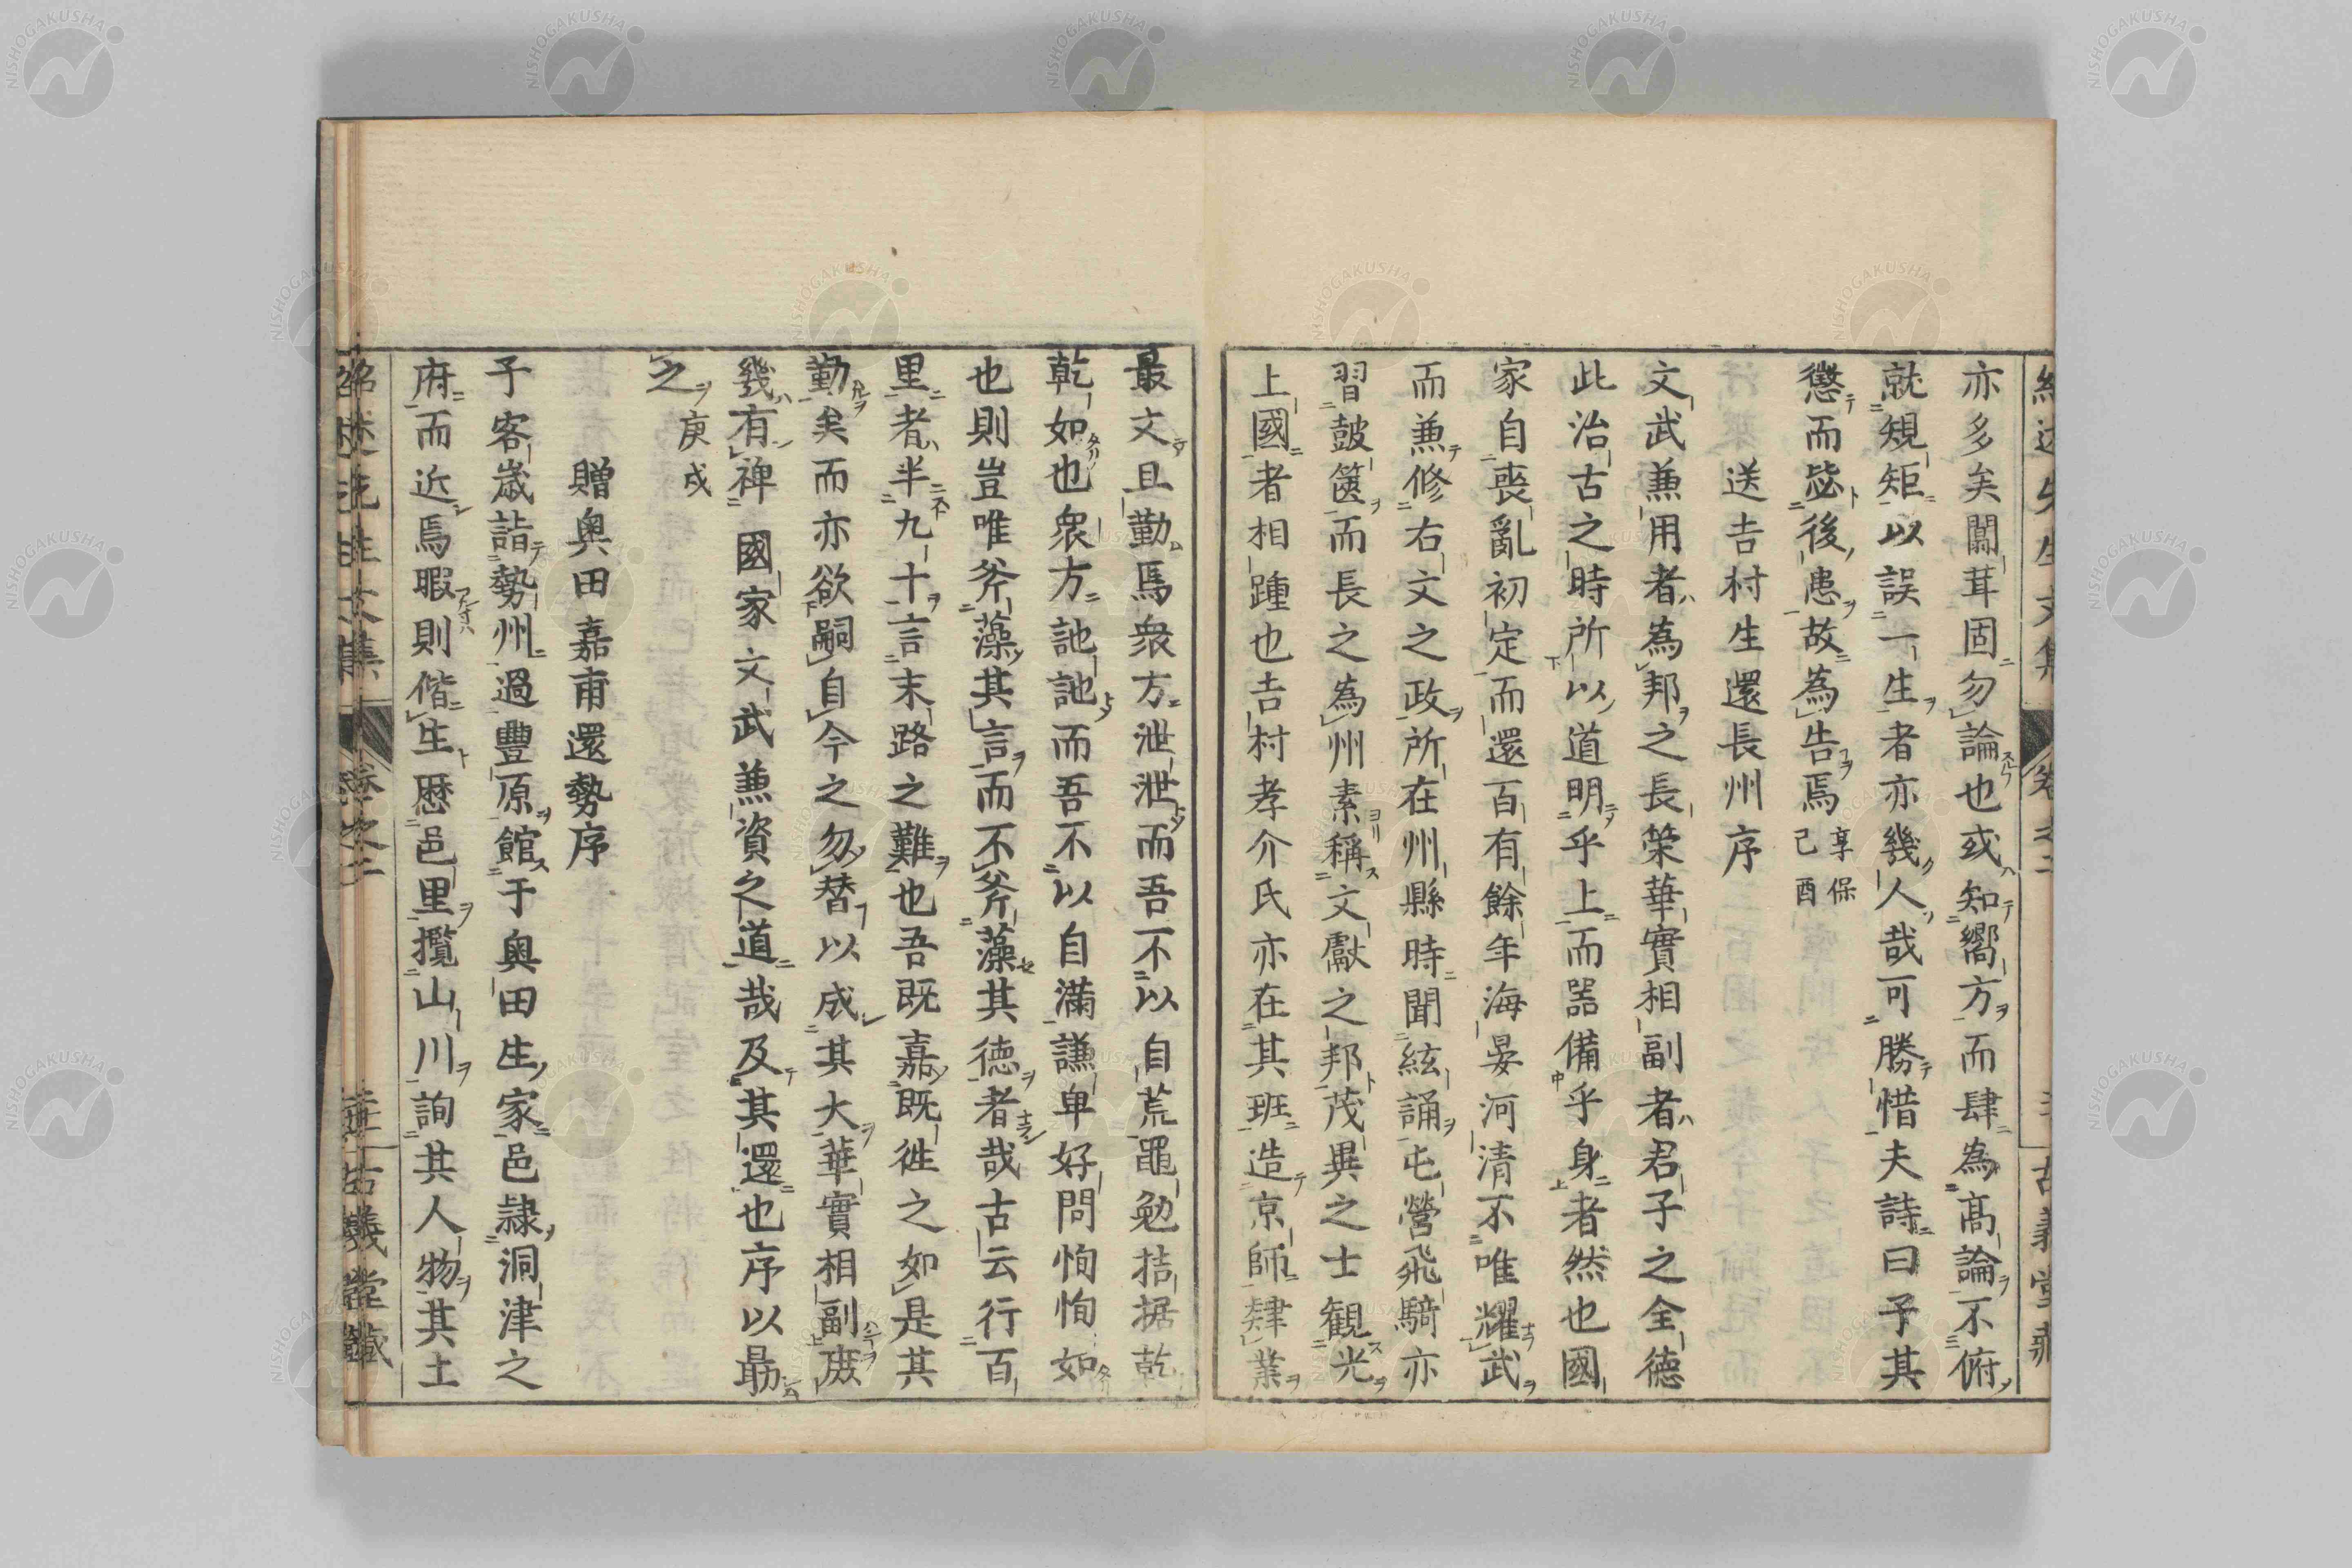 亦多矣闒茸固勿論也或知嚮方而肆為髙論不俯
就規矩以誤一生者亦幾人哉可勝惜夫詩曰予其
懲而毖後患故為告焉享保己酉
送吉村生還長州序
文武兼用者為邦之長榮華實相副者君子之全德
此治古之時所以道明乎上而器備乎身者然也國
家自喪亂初定而還百有餘年海晏河清不唯耀武
而兼修右文之政所在州縣時聞絃誦屯營飛騎亦
習鼓篋而長之為州素稱文獻之邦茂異之士觀光
上國者相踵也吉村孝介氏亦在其班造京師肄業
最文且勤焉衆方泄泄而吾不以自荒黽勉拮据乾
乾如也衆方訑訑而吾不以自滿謙卑好問恂恂如
也則豈唯斧藻其言而不斧藻其德者哉古云行百
里者半九十言末路之難也吾既嘉既徃之如是其
勤矣而亦欲嗣自今之勿替以成其大華實相副庶
幾有裨國家文武兼資之道哉及其還也序以勗
之庚戌
贈奥田嘉甫還勢序
予客歲詣勢州過豐原館于奥田生家邑隷洞津之
府而近焉暇則偕生歷邑里攬山川詢其人物其土
紹述先生文集 卷之二 古義堂藏